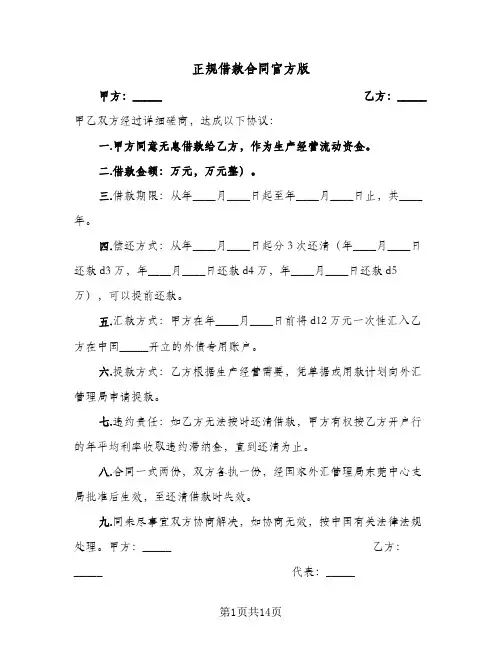 正规借款合同官方版
甲方：_____ 乙方：_____
甲乙双方经过详细磋商，达成以下协议：
一.甲方同意无息借款给乙方，作为生产经营流动资金。
二.借款金额：万元，万元整）。
三.借款期限：从年____月____日起至年____月____日止，共____
年。
四.偿还方式：从年____月____日起分3次还清（年____月____日
还款d3万，年____月____日还款d4万，年____月____日还款d5
万），可以提前还款。
五.汇款方式：甲方在年____月____日前将d12万元一次性汇入乙
方在中国_____开立的外债专用账户。
六.提款方式：乙方根据生产经营需要，凭单据或用款计划向外汇
管理局申请提款。
七.违约责任：如乙方无法按时还清借款，甲方有权按乙方开户行
的年平均利率收取违约滞纳金，直到还清为止。
八.合同一式两份，双方各执一份，经国家外汇管理局东莞中心支
局批准后生效，至还清借款时失效。
九.同未尽事宜双方协商解决，如协商无效，按中国有关法律法规
处理。甲方：_____ 乙方：
_____ 代表：_____
第1页共14页